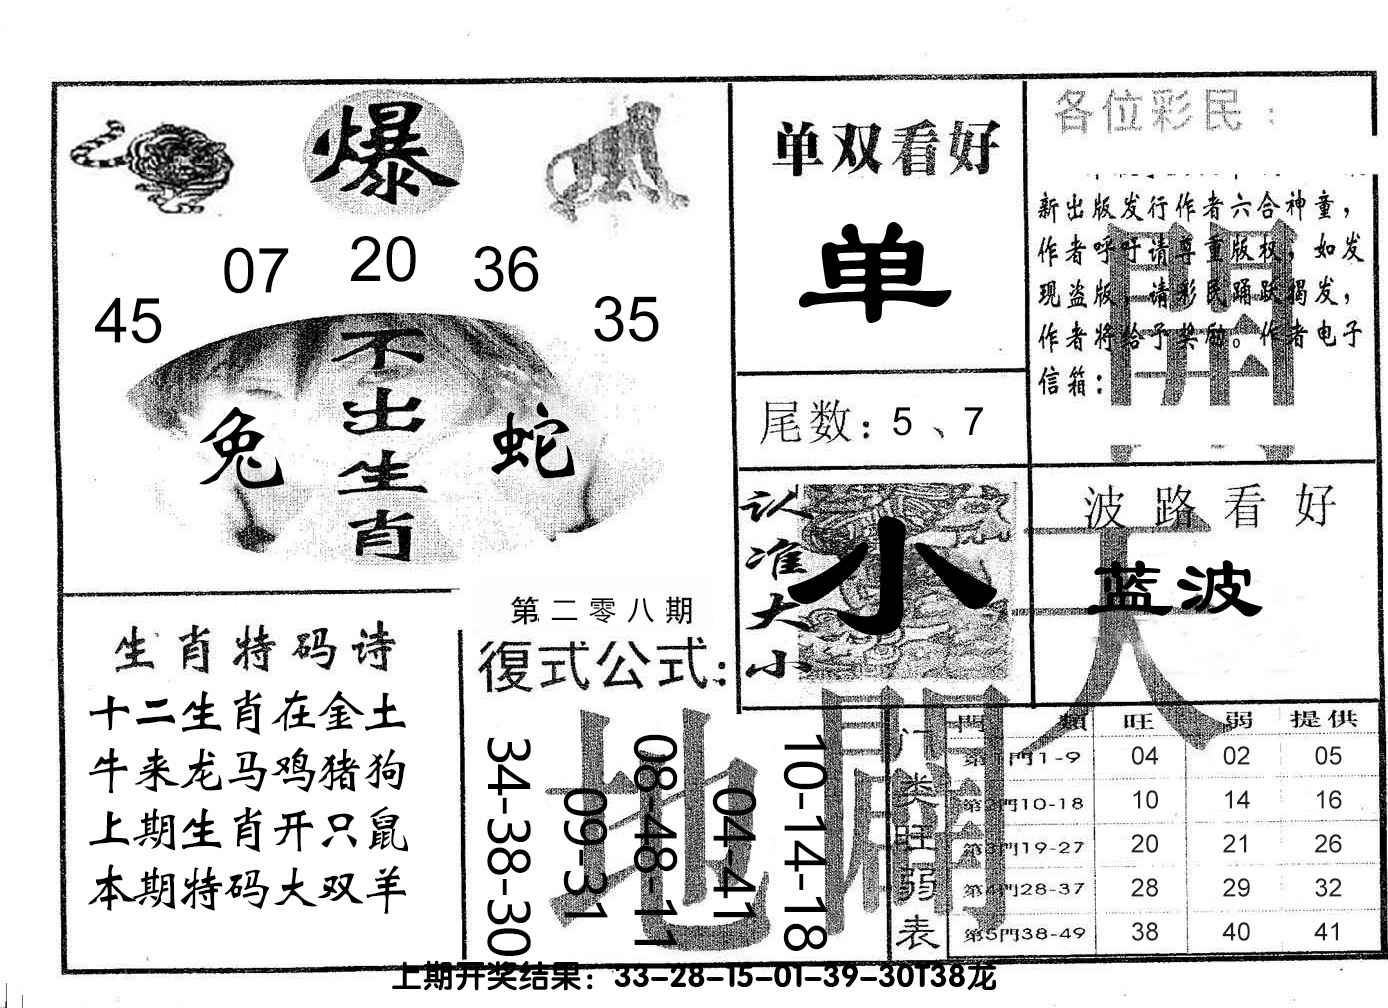 爆
07 20 36
45 35
不出生肖
兔 蛇
单双看好
单
尾数：5、7
各位彩民：
新出版发行作者六合神童，
作者呼吁请尊重版权，如发
现盗版，请彩民踊跃揭发，
作者将给予奖励。作者电子
信箱：
認准大小
小
波路看好
蓝波
生肖特码诗
十二生肖在金土
牛来龙马鸡猪狗
上期生肖开只鼠
本期特码大双羊
第二零八期
復式公式：
34-38-30
09-31
08-48-11
04-41
10-14-18
天
地
開
门类旺弱表
門類 旺 弱 提供
第1門1-9 04 02 05
第2門10-18 10 14 16
第3門19-27 20 21 26
第4門28-37 28 29 32
第5門38-49 38 40 41
上期开奖结果：33-28-15-01-39-30T38龙